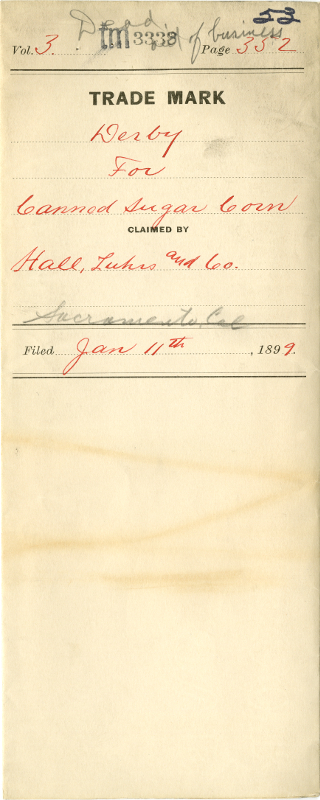 53
Dead
of business
Vol. 3. tm 3338 Page 352
TRADE MARK
Derby
For
Canned Sugar Corn
CLAIMED BY
Hall, Luhrs and Co.
Sacramento, Cal
Filed Jan 11th, 1899.